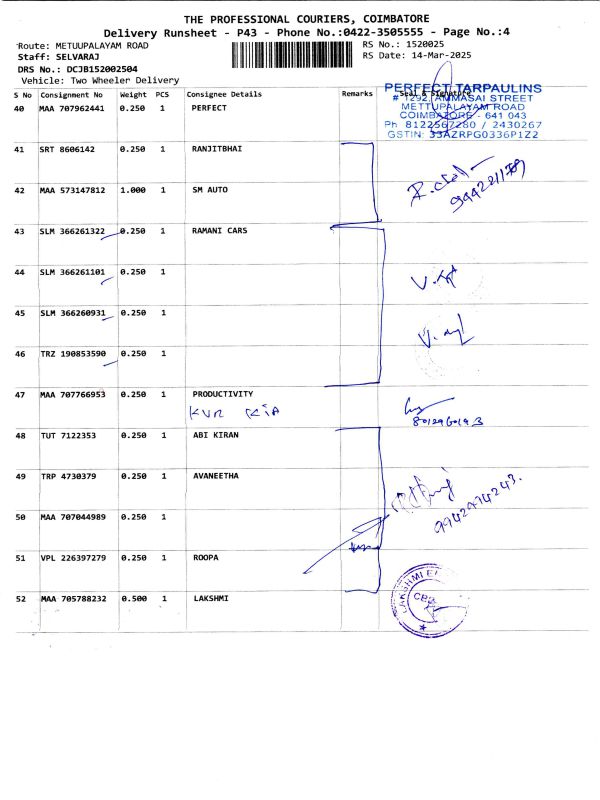 THE PROFESSIONAL COURIERS, COIMBATORE
Delivery Runsheet - P43 - Phone No.:0422-3505555 - Page No.:4
Route: METUUPALAYAM ROAD
RS No.: 1520025
Staff: SELVARAJ
RS Date: 14-Mar-2025
DRS No.: DCJB152002504
Vehicle: Two Wheeler Delivery
S No Consignment No Weight PCS Consignee Details Remarks Seal & Signature
PERFECT TARPAULINS
# 1292, AMMASAI STREET
METTUPALAYAM ROAD
COIMBATORE - 641 043
Ph 8122567280 / 2430267
GSTIN: 33AZRPG0336P1Z2
40 MAA 707962441 0.250 1 PERFECT
41 SRT 8606142 0.250 1 RANJITBHAI
42 MAA 573147812 1.000 1 SM AUTO
43 SLM 366261322 0.250 1 RAMANI CARS
44 SLM 366261101 0.250 1
45 SLM 366260931 0.250 1
46 TRZ 190853590 0.250 1
47 MAA 707766953 0.250 1 PRODUCTIVITY
KVR KIA
48 TUT 7122353 0.250 1 ABI KIRAN
49 TRP 4730379 0.250 1 AVANEETHA
9942974243.
50 MAA 707044989 0.250 1
51 VPL 226397279 0.250 1 ROOPA
52 MAA 705788232 0.500 1 LAKSHMI
LAKSHMI
CBE